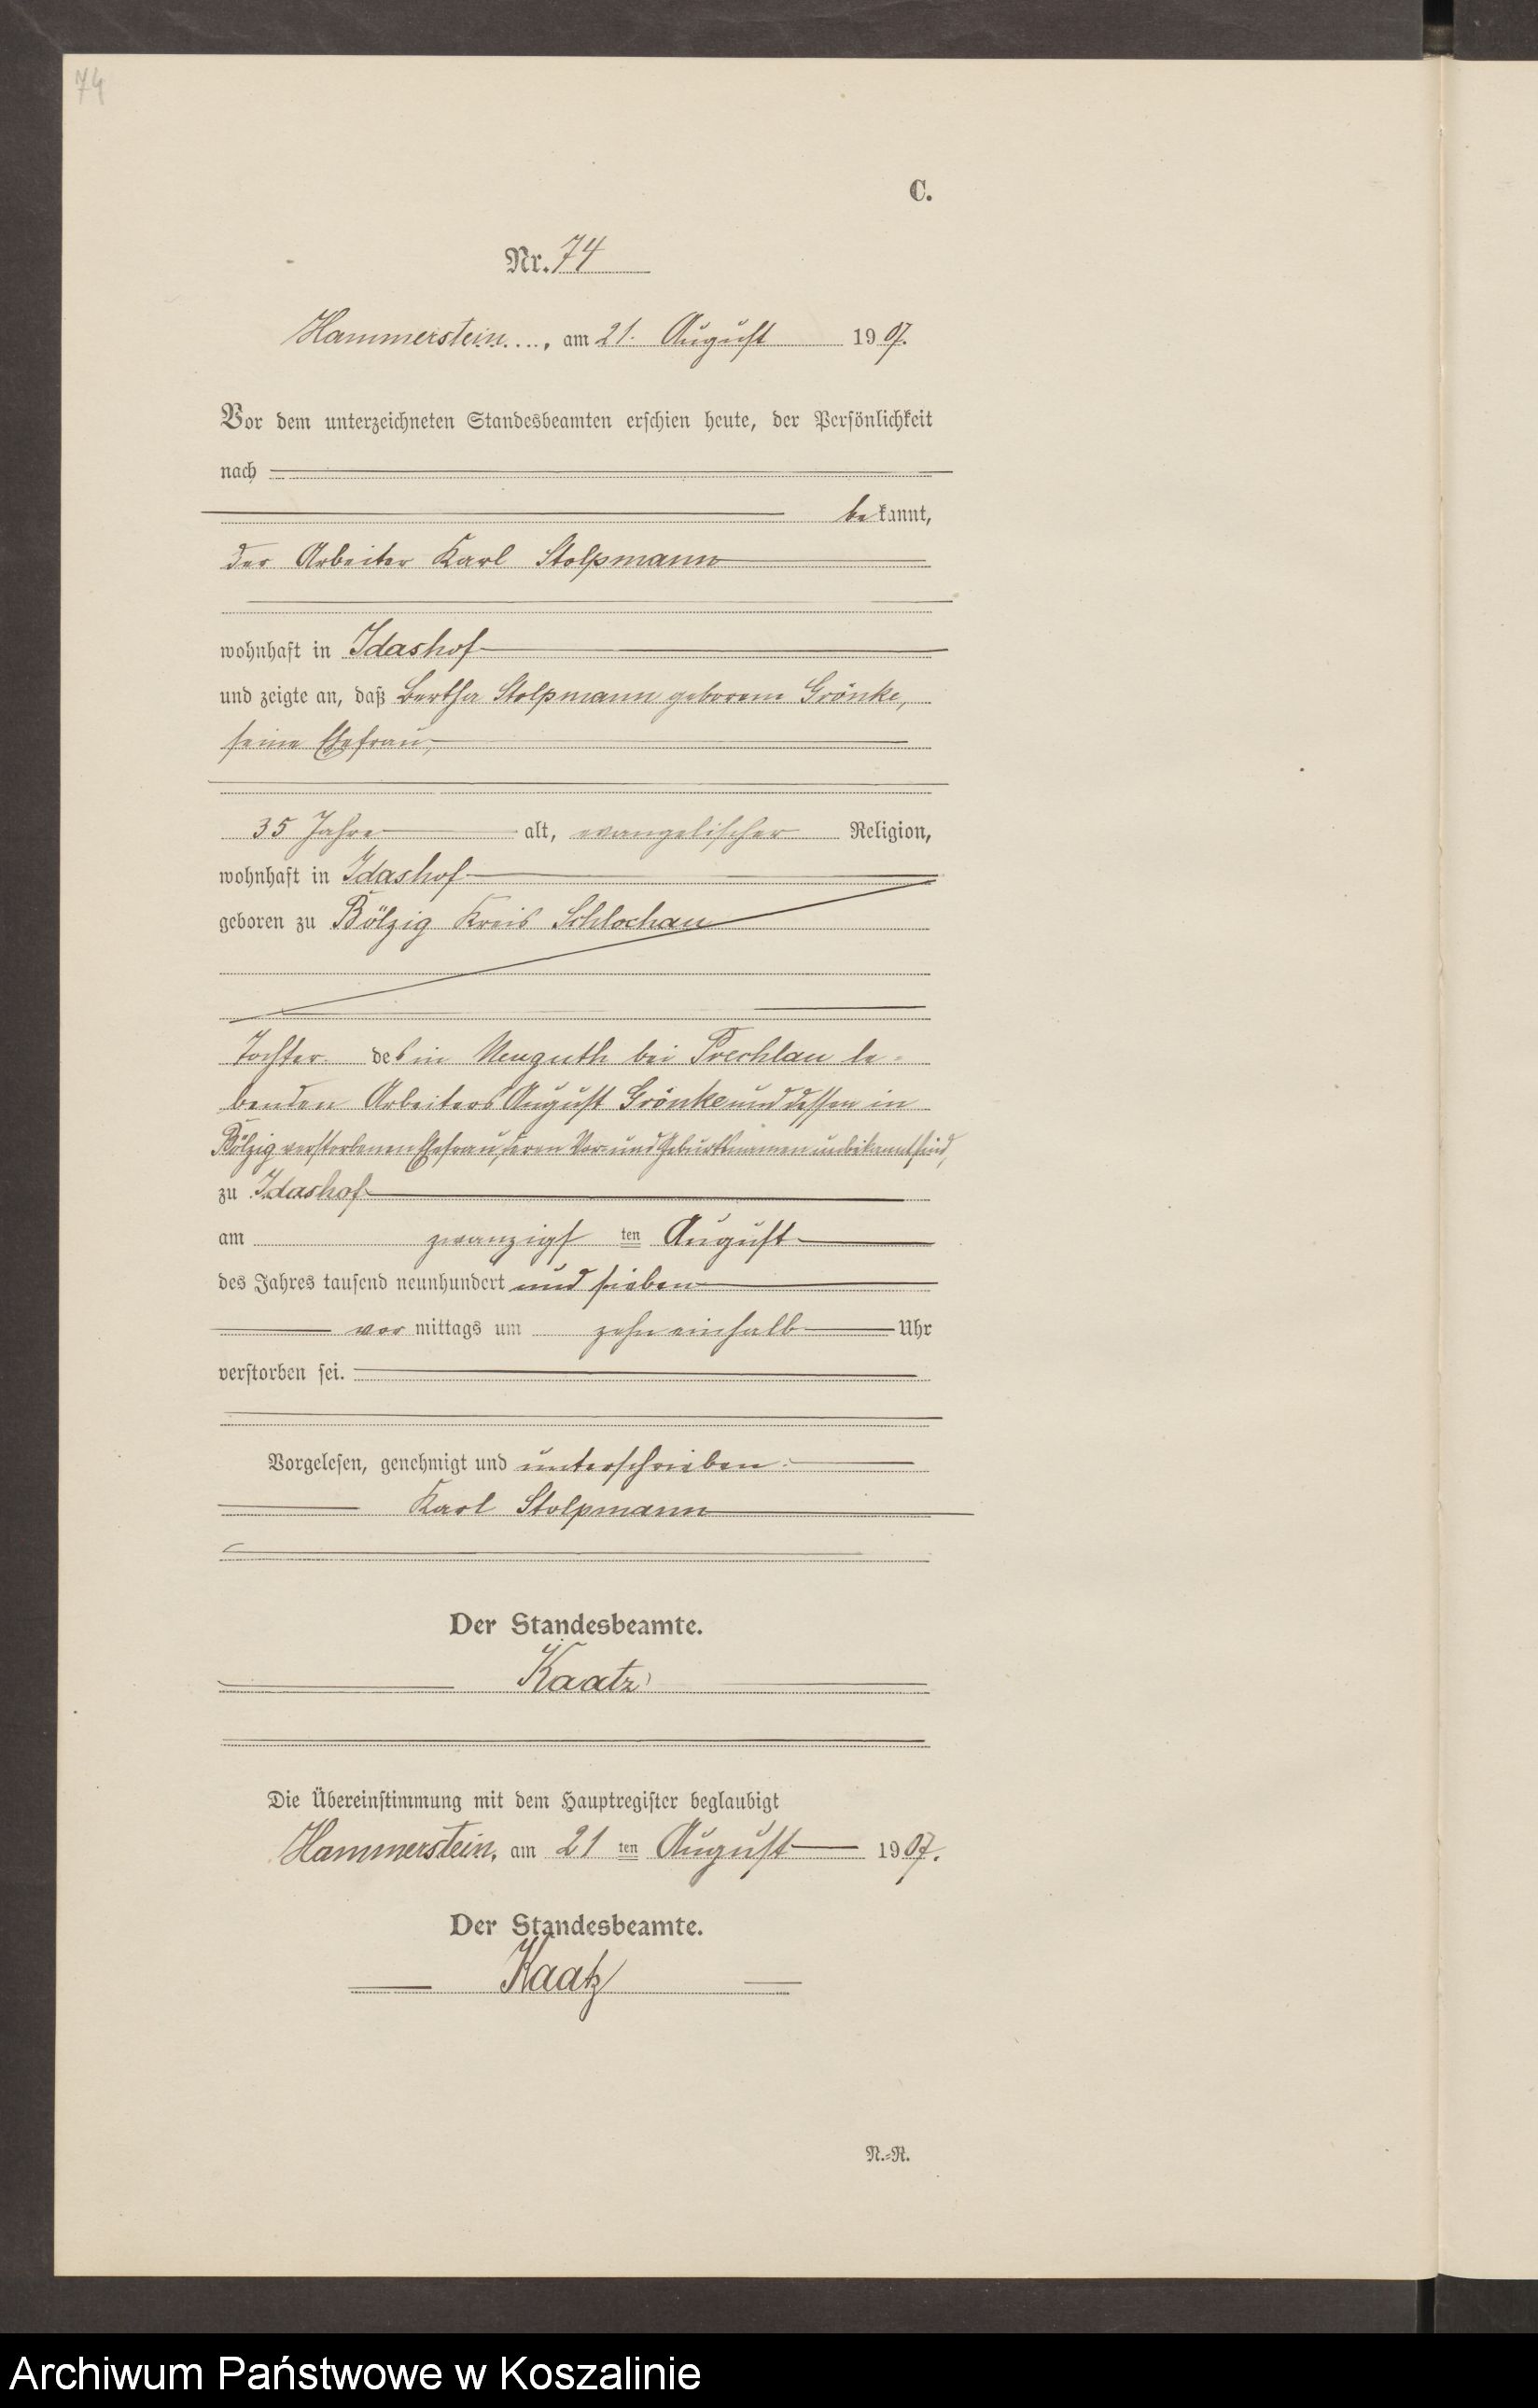 74
C.
Nr. 74
Hammerstein...., am 21. August 1907.
Vor dem unterzeichneten Standesbeamten erschien heute, der Persönlichkeit
nach
bekannt,
der Arbeiter Karl Stolpmann
wohnhaft in Idashof
und zeigte an, daß Bertha Stolpmann geborene Grönke,
seine Ehefrau,
35 Jahre alt, evangelischer Religion,
wohnhaft in Idashof
geboren zu Bölzig Kreis Schlochau
Tochter des in Neuguth bei Prechlau le-
benden Arbeiters August Grönke und dessen in
Bölzig verstorbenen Ehefrau, deren Vor- und Geburtsnamen unbekannt sind,
zu Idashof
am zwanzigsten August
des Jahres tausend neunhundert und sieben
vor mittags um zehn einhalb Uhr
verstorben sei.
Vorgelesen, genehmigt und unterschrieben.
Karl Stolpmann
Der Standesbeamte.
Kaatz
Die Übereinstimmung mit dem Hauptregister beglaubigt
Hammerstein, am 21 ten August 1907.
Der Standesbeamte.
Kaatz
N.-R.
Archiwum Państwowe w Koszalinie